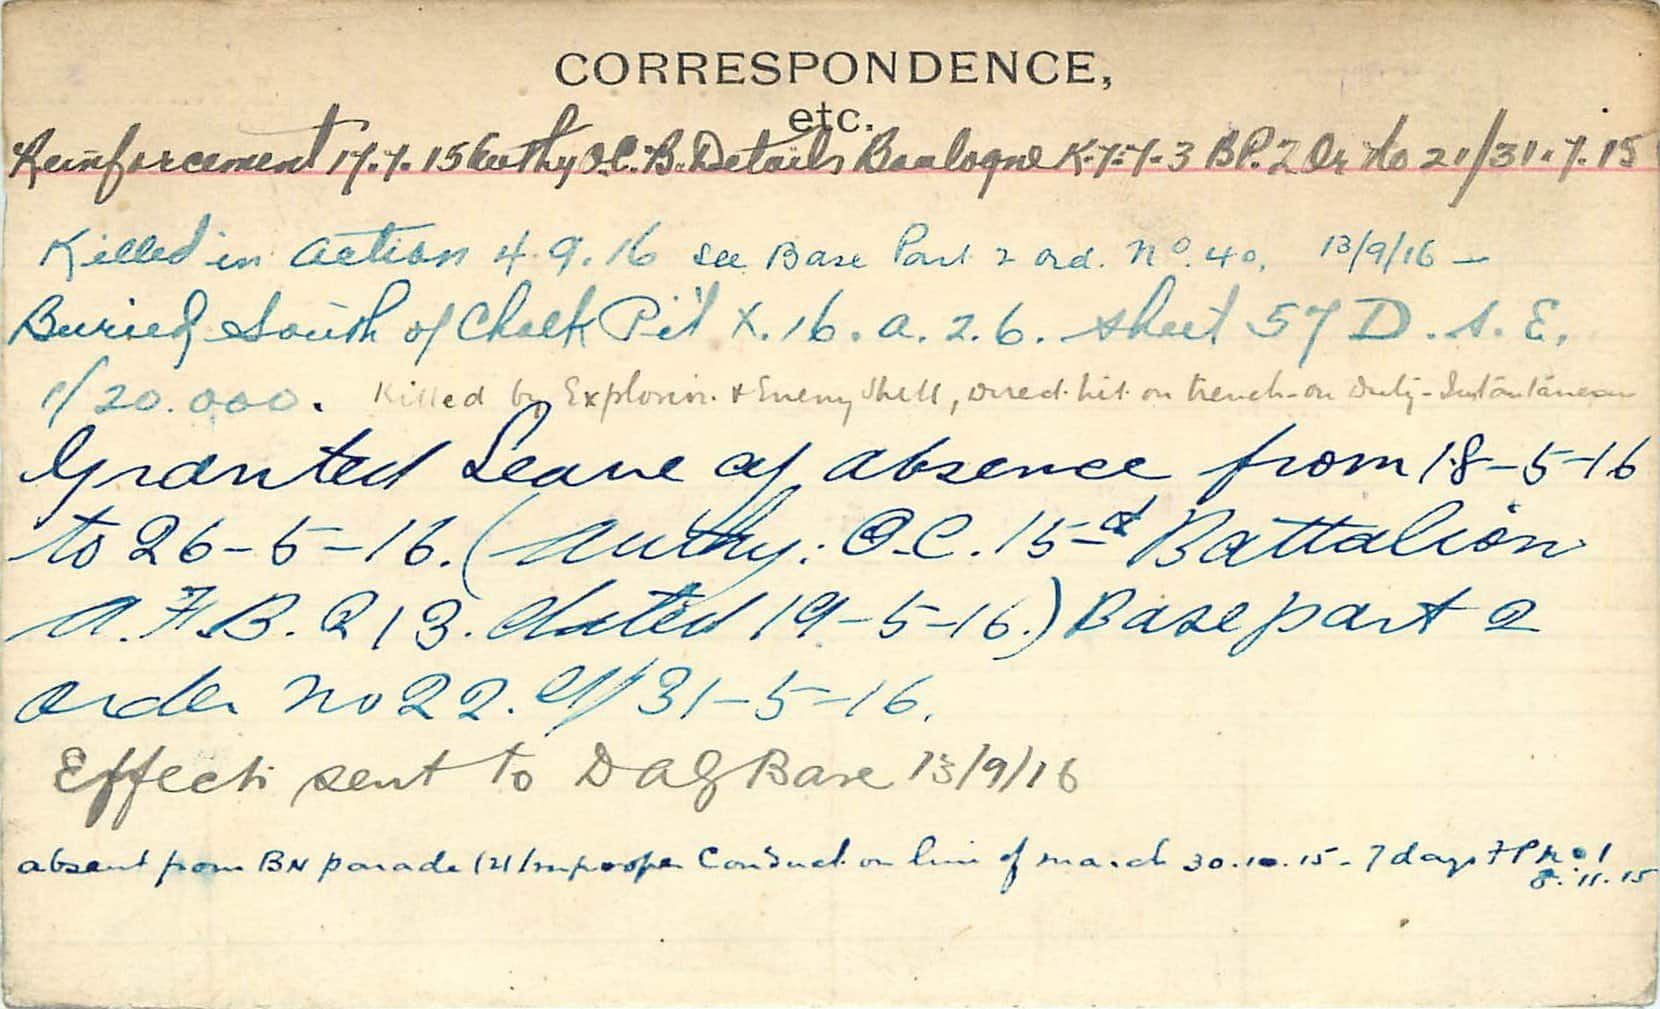 CORRESPONDENCE,
etc.
Reinforcement 17.7.15 Authy O.C. B. Details Boulogne K-7-7-3 BP. 2 Or No 21/31.7.15
Killed in action 4.9.16 see Base Part 2 ord. No. 40, 13/9/16 —
Buried South of Chalk Pit X.16.a.2.6. sheet 57 D. S. E.
1/20.000. Killed by Explosion Enemy Shell, Direct hit on trench - on Duty - Instantaneous
Granted Leave of absence from 18-5-16
to 26-5-16. (Authy: O.C. 15th Battalion
A.F.B. 213. dated 19-5-16.) Base part 2
order no 22. 31-5-16.
Effects sent to DAG Base 13/9/16
absent from BN parade (2) Improper Conduct on line of march 30.10.15 - 7 days FP No 1
8.11.15